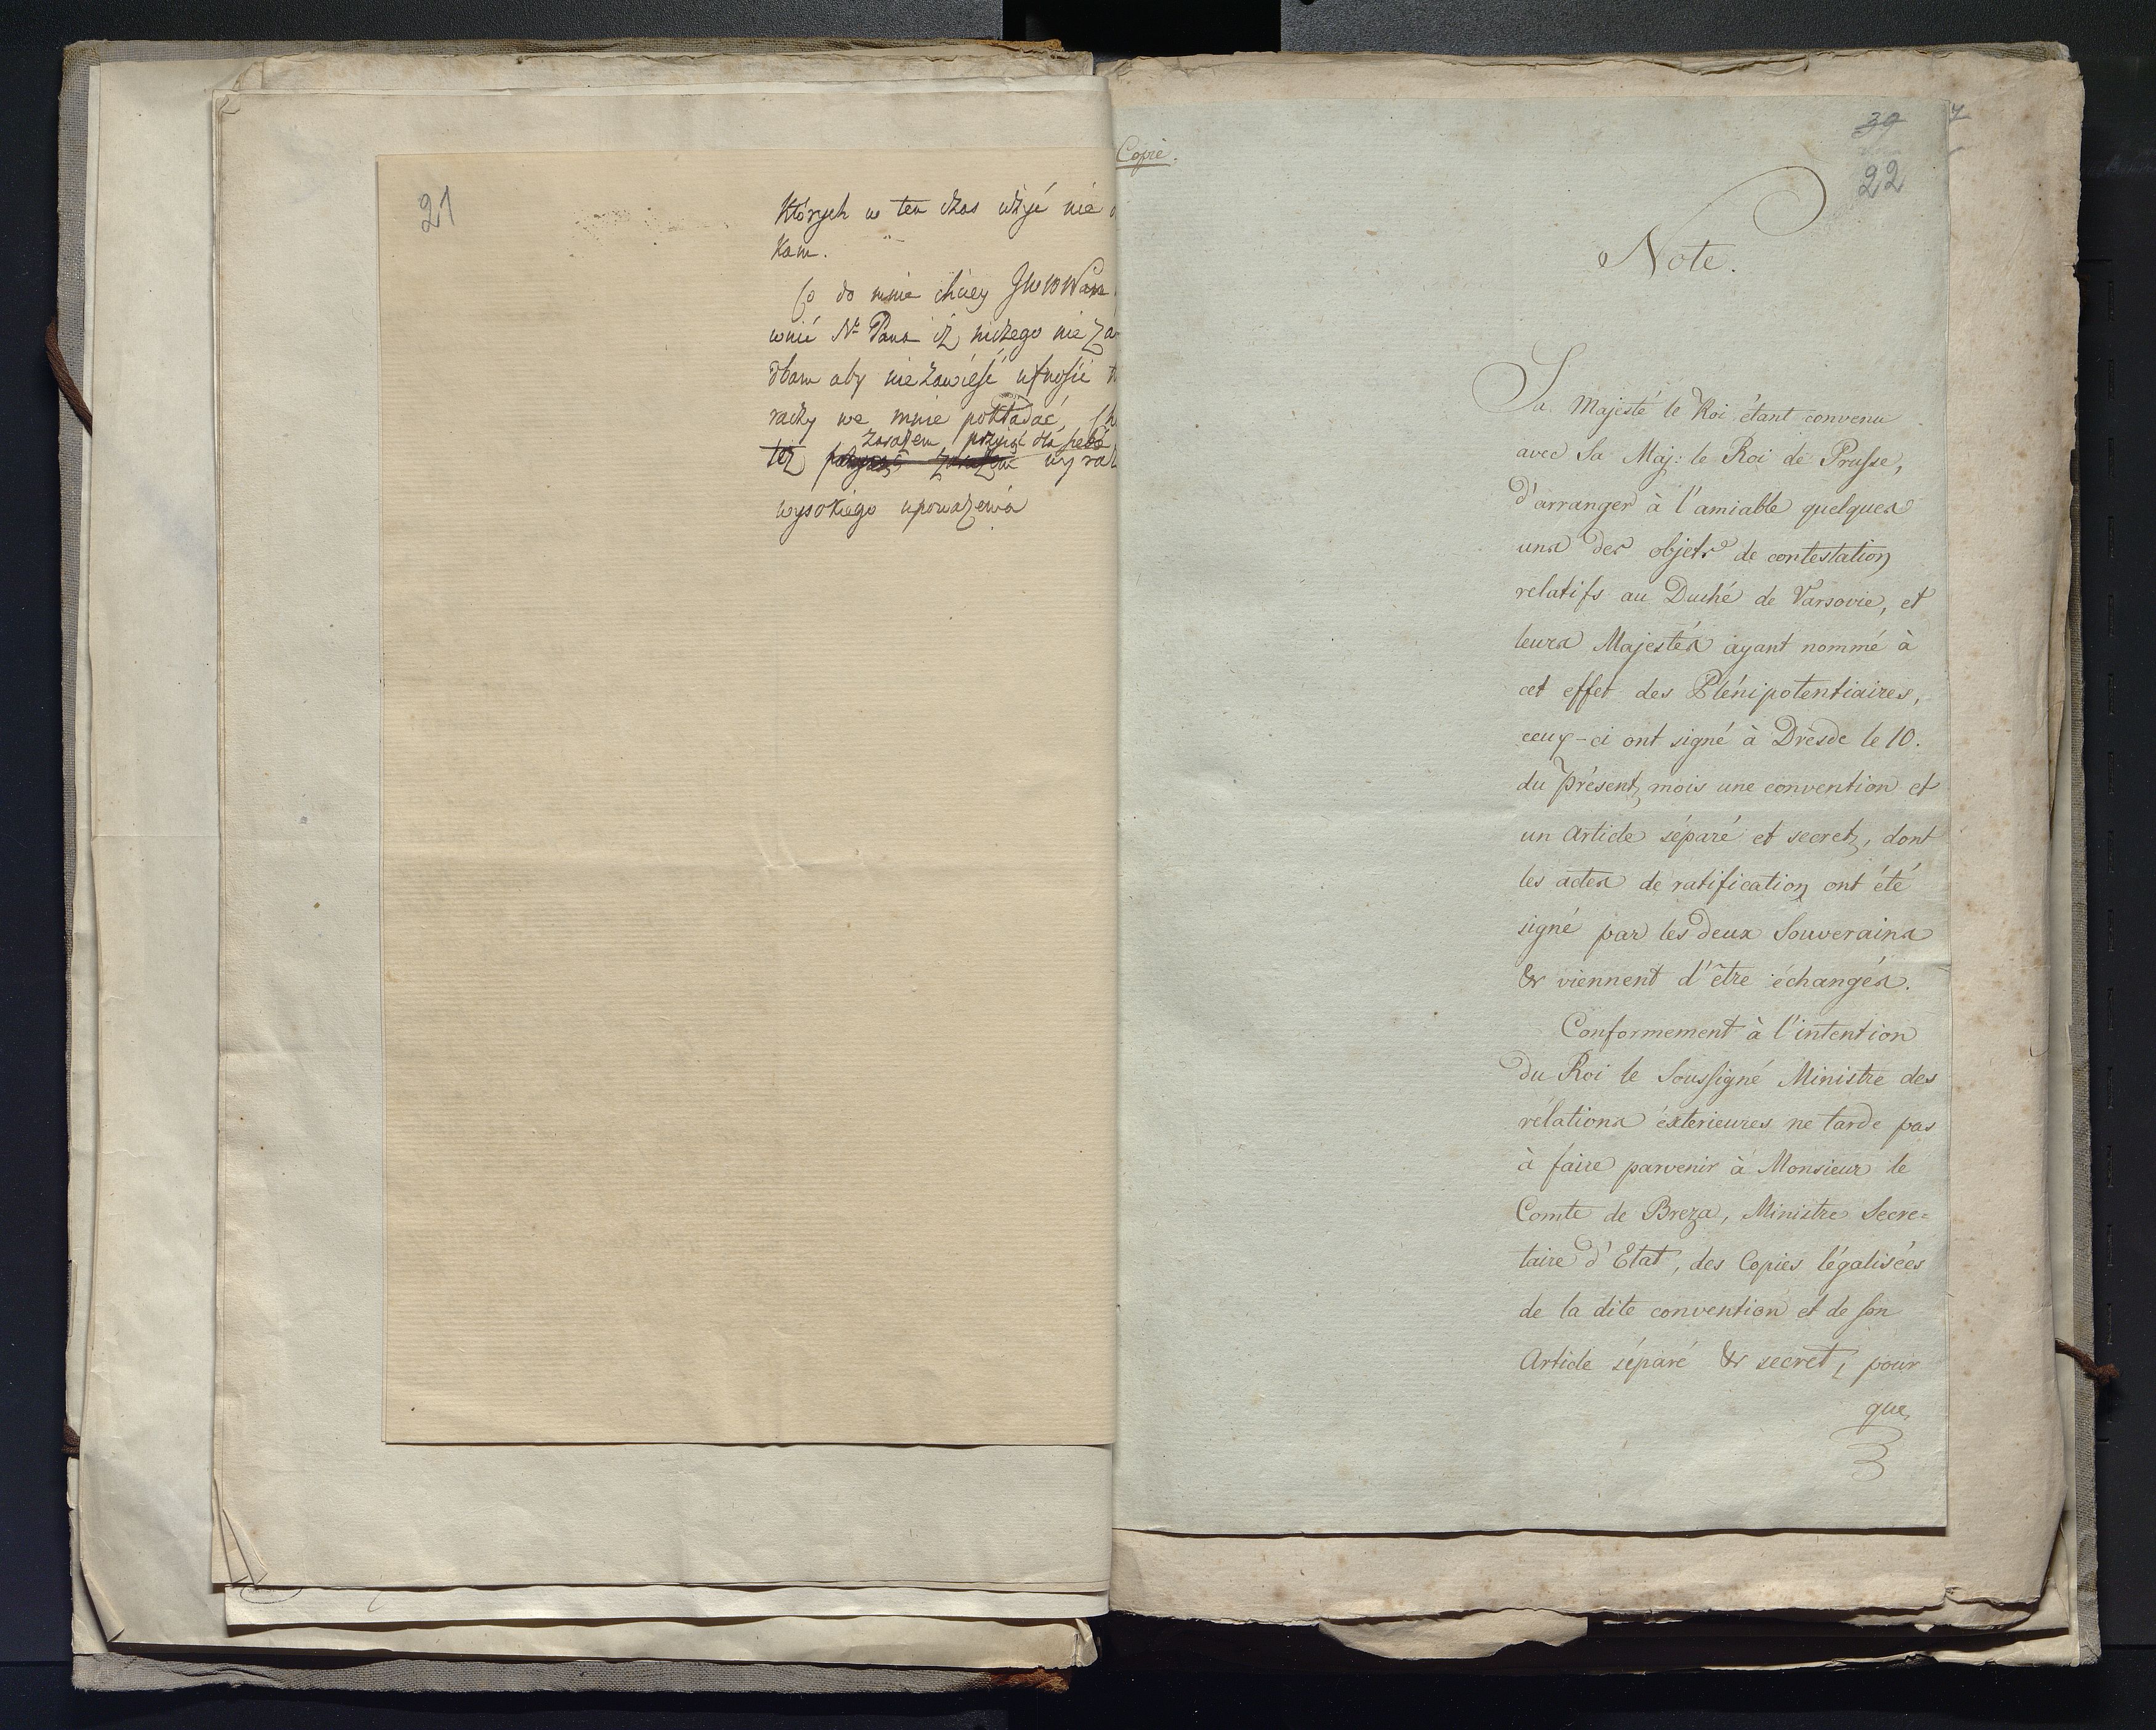 21
Których w ten czas użyć nie
kam.
Co do mnie chciey JWW Pan
wnić Nº Pana iż niczego nie za
dbam aby nie zawieść ufności
raczy we mnie pokładać,
zarazem przyiąć dla siebie
też wyra
wysokiego upoważenia
Copie.
39
22
7
Note.
Sa Majesté le Roi étant convenu
avec Sa Maj: le Roi de Prusse,
d'arranger à l'amiable quelques
uns des objets de contestation
relatifs au Duché de Varsovie, et
leurs Majestés ayant nommé à
cet effet des Plénipotentiaires,
ceux-ci ont signé à Dresde le 10.
du présent mois une convention et
un Article séparé et secret, dont
les actes de ratification ont été
signé par les deux Souverains
& viennent d'être échangés.
Conformement à l'intention
du Roi le Soussigné Ministre des
rélations éxterieures ne tarde pas
à faire parvenir à Monsieur le
Comte de Breza, Ministre Secre=
taire d'Etat, des Copies légalisées
de la dite convention et de son
Article séparé & secret, pour
que